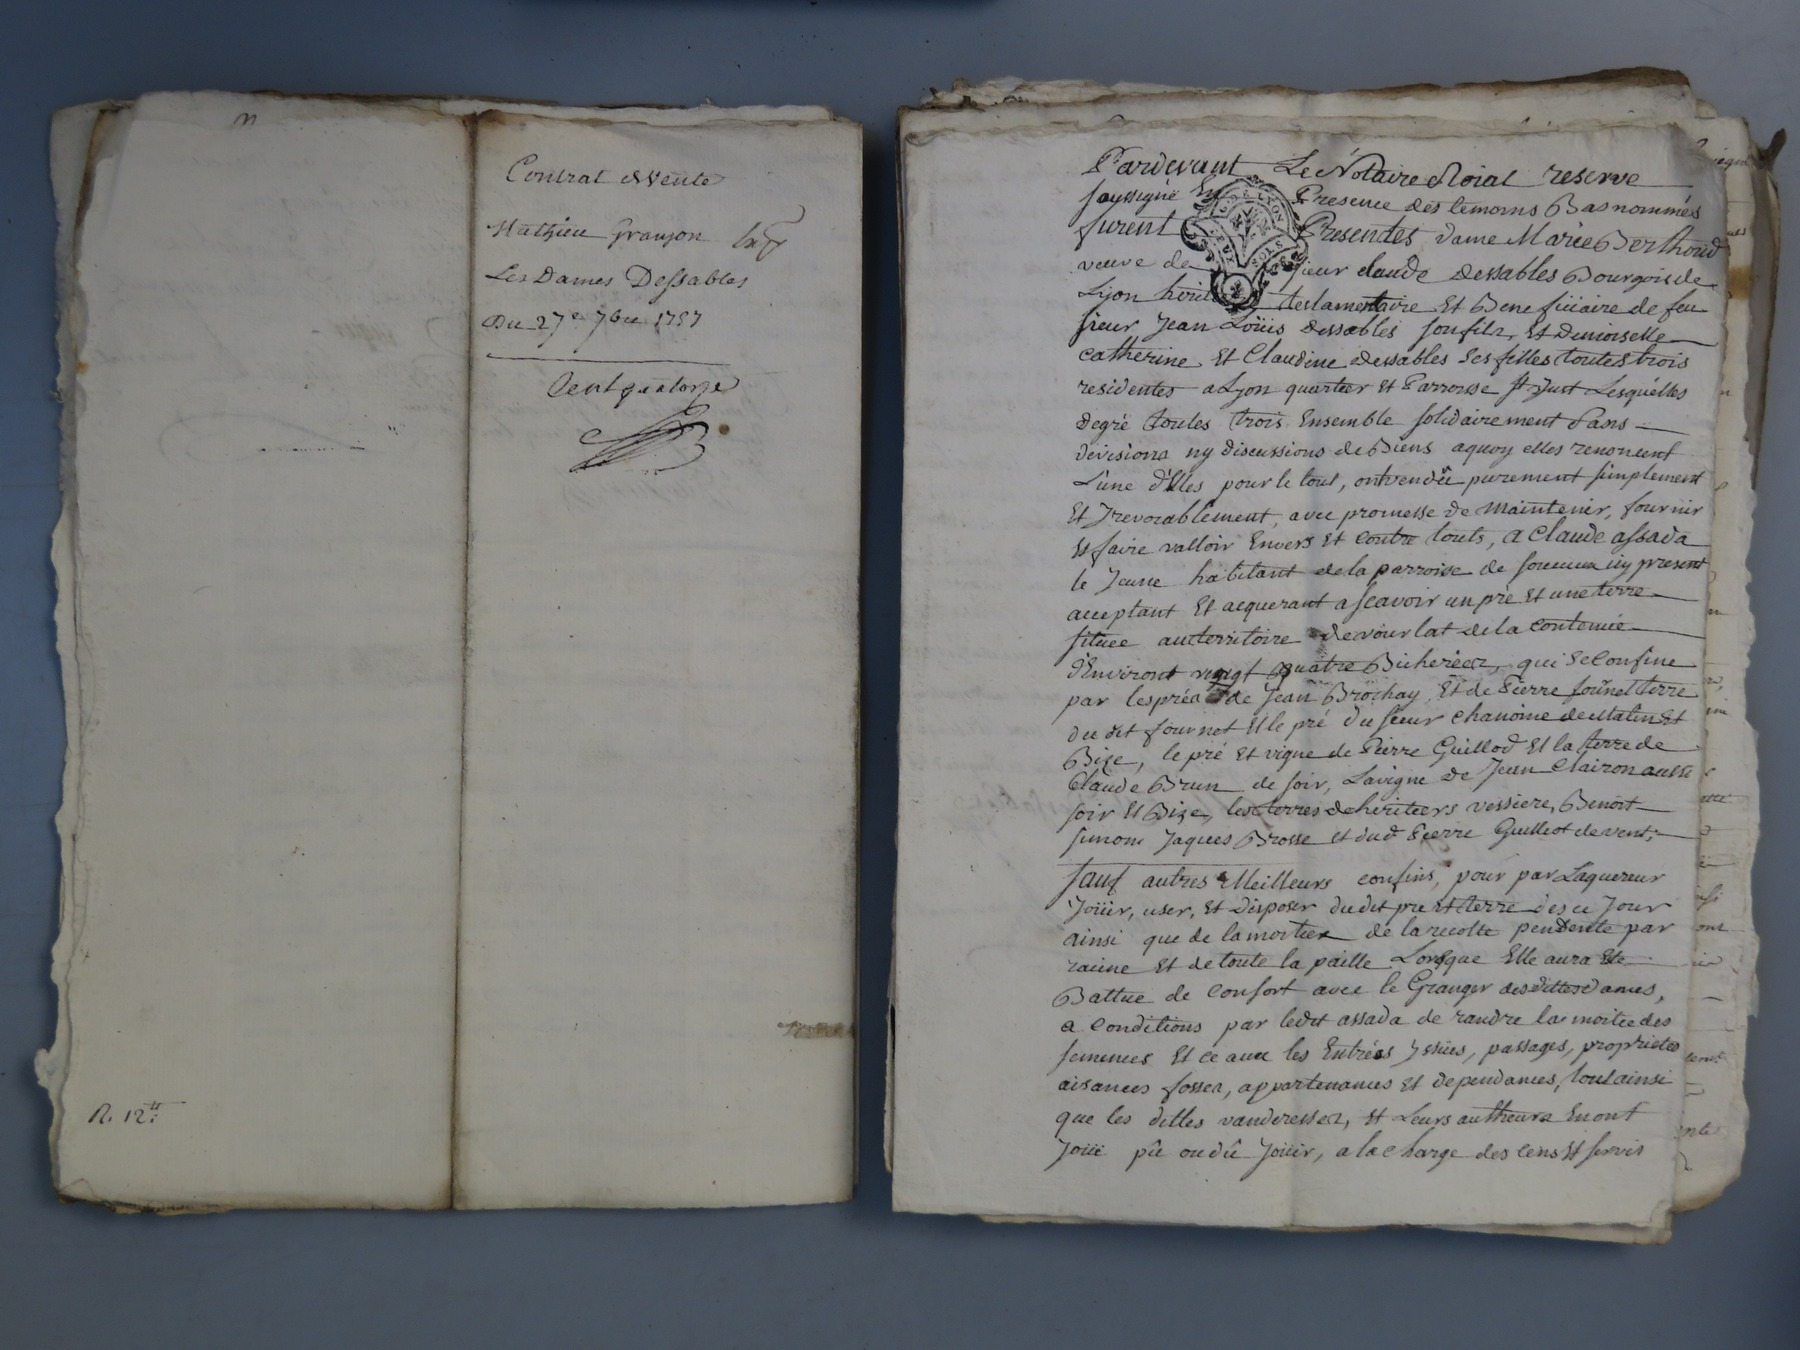 Contrat de vente
Mathieu Granjon
Les Dames Dessables
Du 27e 7bre 1757
Cent quatorze
R. 12tt
Pardevant Le Notaire Roial reserve
soussigné En Presence des temoins Bas nommés
furent Presentes dame Marie Berthoud
veuve de sieur claude dessables Bourgois de
Lyon herit testamentaire Et Beneficiaire de feu
sieur Jean Loüis dessables son fils, Et demoiselle
catherine Et Claudine dessables ses filles toutes trois
residentes a Lyon quartier Et Parroisse St Just Lesquelles
degré toutes trois Ensemble solidairement sans
divisions ny discussions de Biens aquoy elles renoncent
L'une d'Elles pour le tout, ont vendû purement simplement
Et Jrevocablement, avec promesse de maintenir, fournir
Et faire valloir Envers Et contre touts, a Claude assada
le Jeune habitant de la parroise de icy present
acceptant Et acquerant a scavoir un pre Et une terre
située au territoire de vourlat de la contenüe
d'Environt vingt quatre Bicherées, qui se confine
par les prés de Jean Brochay Et de Pierre fournet terre
du dit fournet Et le pré du sieur chanoine de matin Et
Bize, le pré Et vigne de Pierre Guillod Et la terre de
Claude Brun de soir, La vigne de Jean Clairon aussi
soir Et Bize, les terres de heritiers vessiere, Benoit
simon Jaques Brosse et dud Pierre Guilliot de vent;
sauf autres Meilleurs confins, pour par Laquereur
Joüir, user, Et disposer dudit pre Et terre des ce Jour
ainsi que de la moitier de la recolte pendente par
racine Et de toute la paille Lorsque Elle aura Ete
Battue de confort avec le Granger desdittes Dames,
a conditions par ledit assada de randre la moitie des
semences Et ce avec les Entrées Jssües, passages, proprietes
aisances fosses, appartenances Et dependances, tout ainsi
que les dittes vanderesses, Et Leurs autheurs En ont
Joüi pû ou dû Joüir, a la charge des cens Et servis